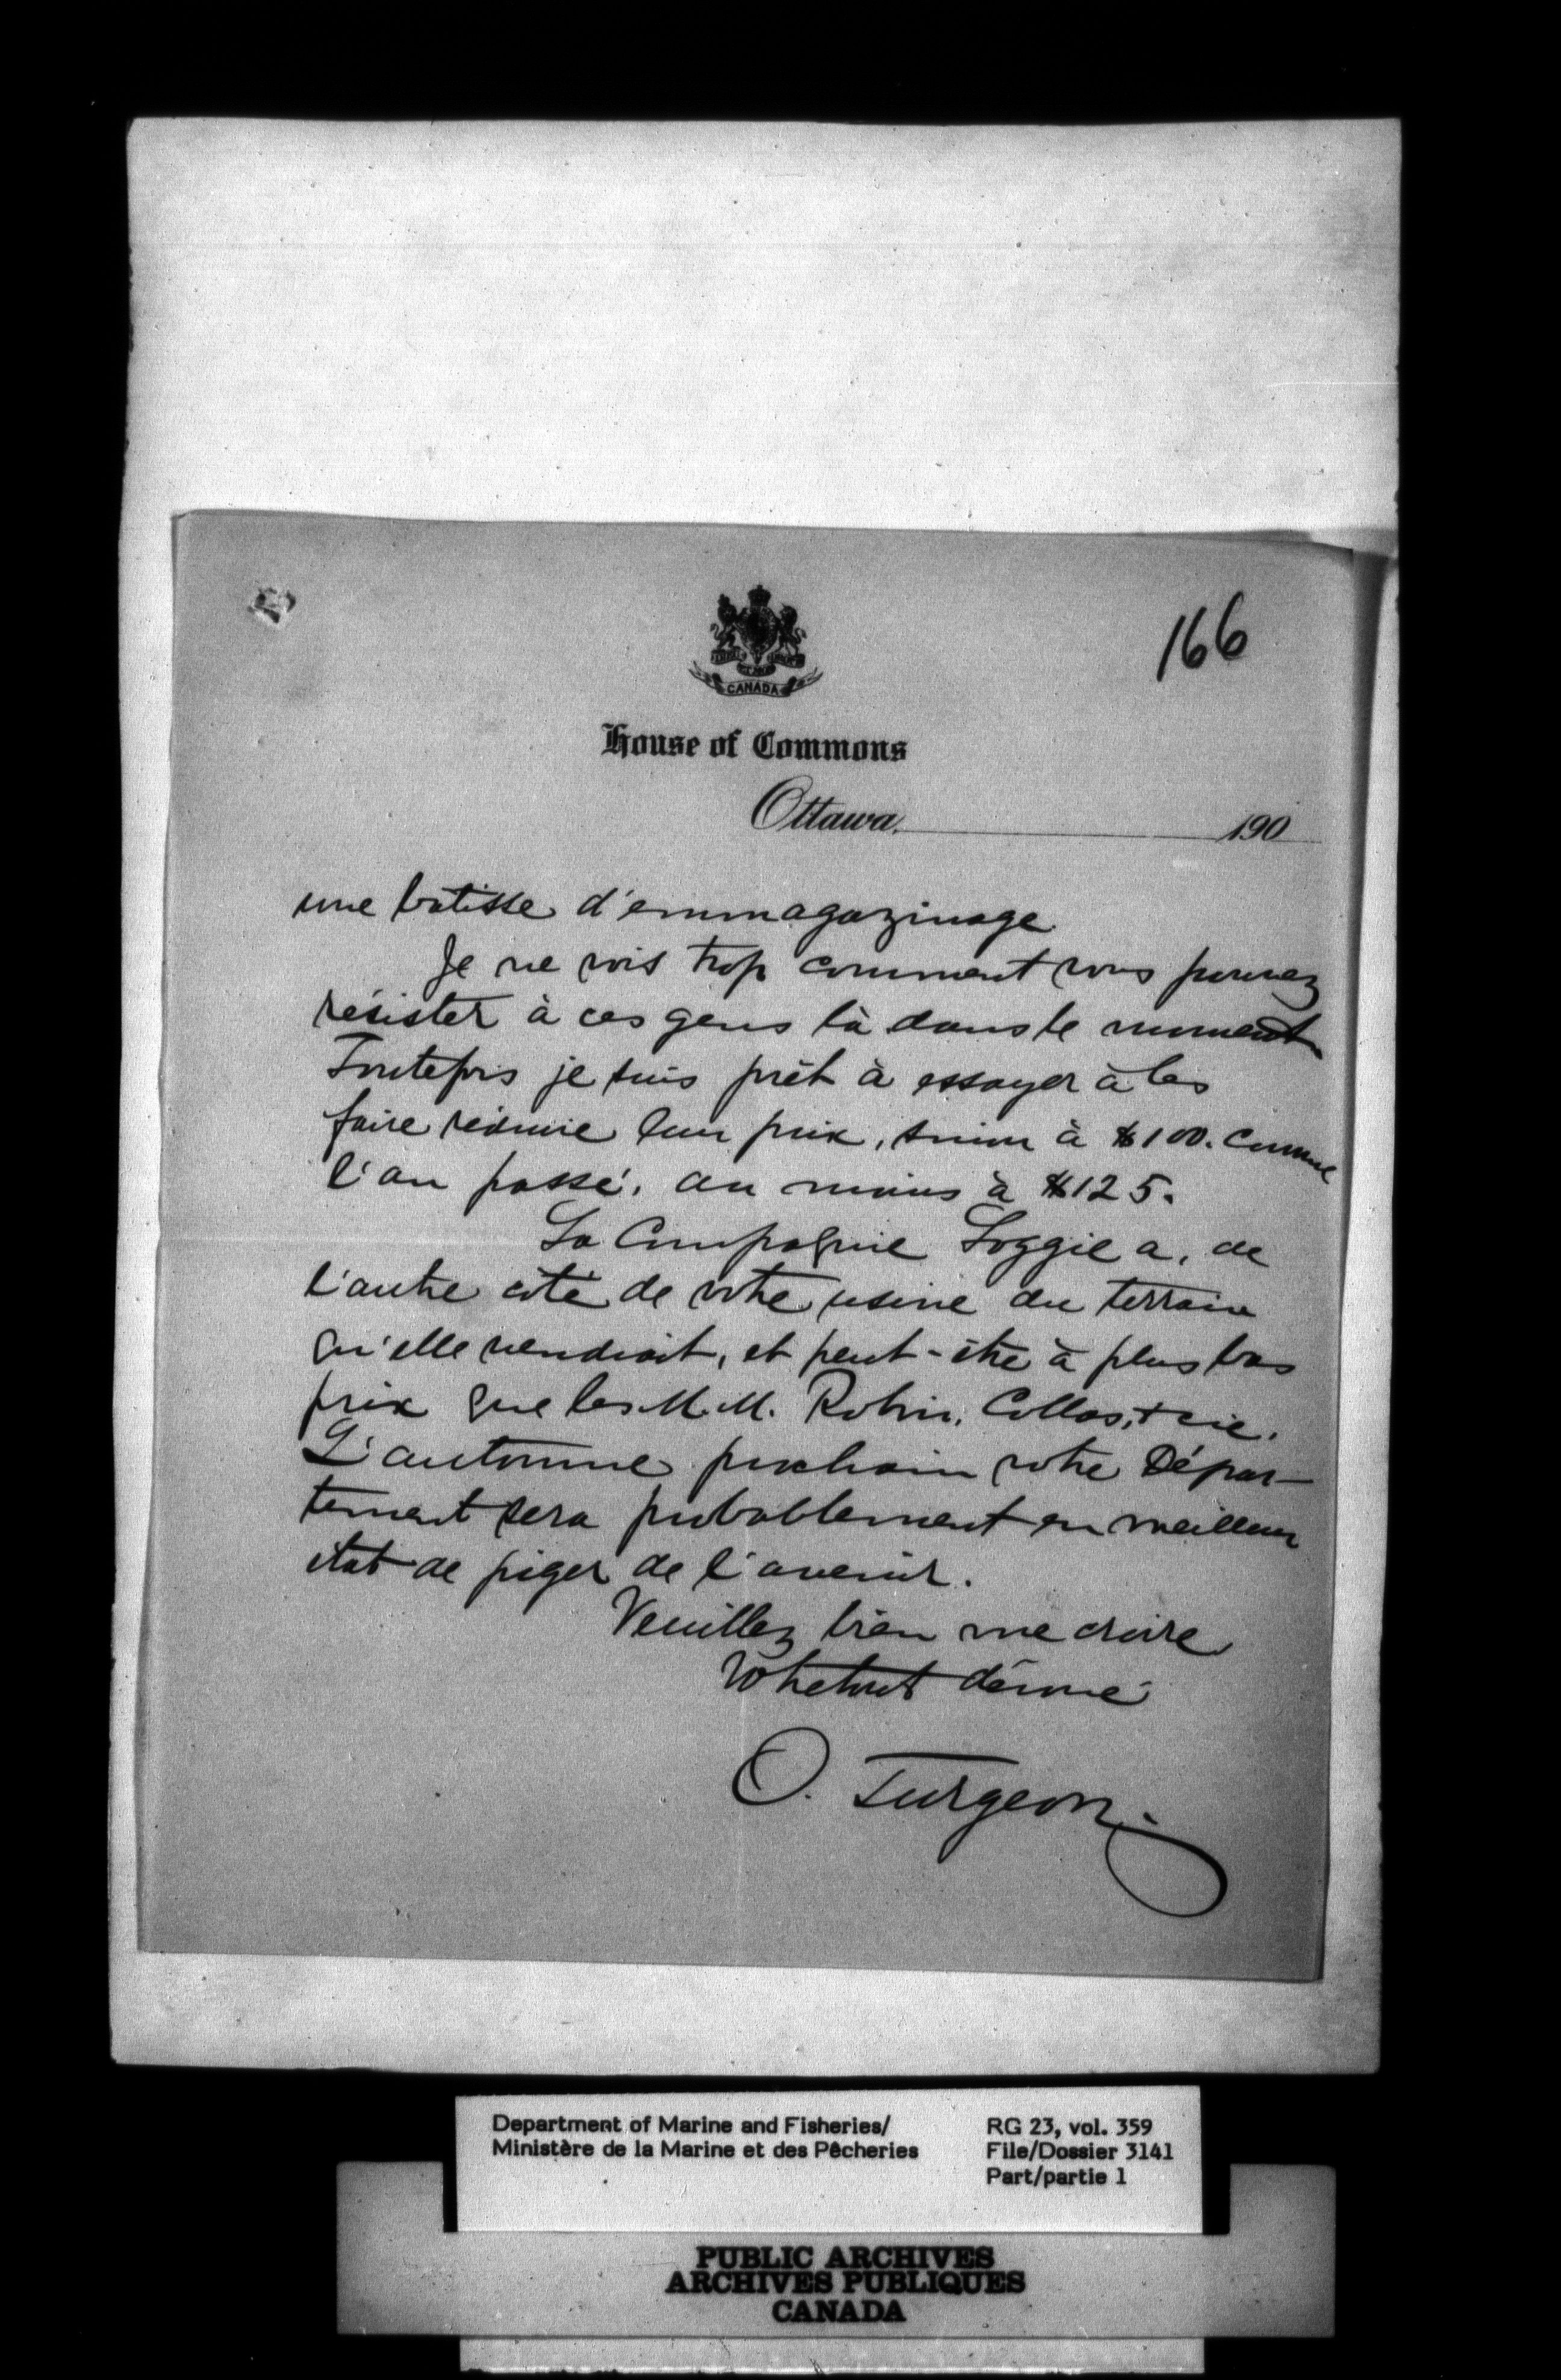 166
CANADA
House of Commons
Ottawa, 190
une batisse d'emmagazinage.
Je ne vois trop comment vous pouvez
résister à ces gens là dans le moment
Toutefois je suis prêt à essayer à les
faire réduire leur prix, sinon à $100. comme
l'an passé, au moins à $125.
La Compagnie Loggie a, de
l'autre côté de votre usine du terrain
qu'elle vendrait, et peut-être à plus bas
prix que les M.M. Robin, Collas, + cie.
L'automne prochain votre Dépar-
tement sera probablement en meilleur
état de juger de l'avenir.
Veuillez bien me croire
Votre tout dévoué
O. Turgeon.
Department of Marine and Fisheries/
Ministère de la Marine et des Pêcheries
RG 23, vol. 359
File/Dossier 3141
Part/partie 1
PUBLIC ARCHIVES
ARCHIVES PUBLIQUES
CANADA